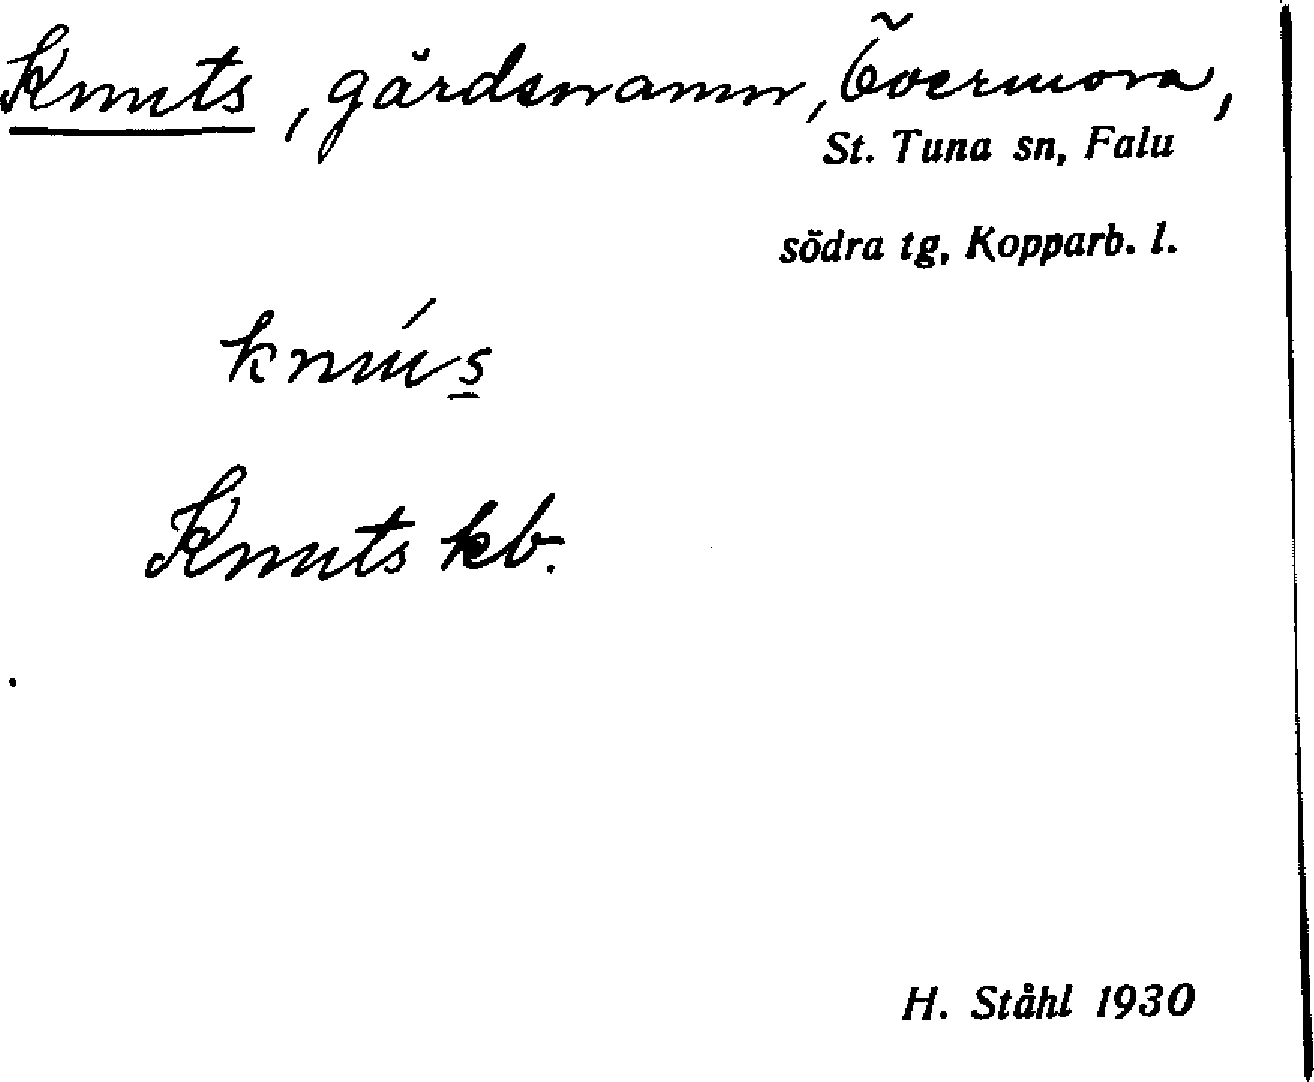 Knuts, gårdsnamn, Övermora,
St. Tuna sn, Falu
södra tg, Kopparb. l.
Knuts kb.
H. Ståhl 1930